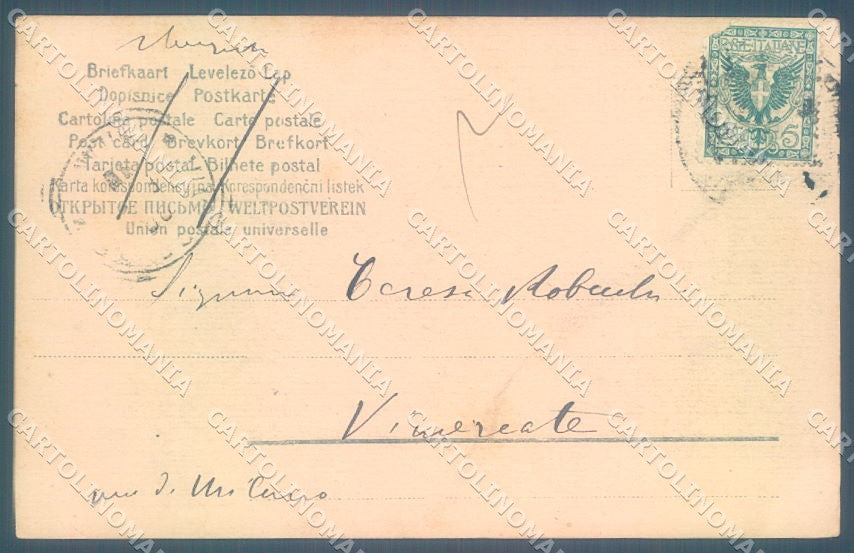 Briefkaart Levelező Lap
Dopisnice Postkarte
Cartolina postale Carte postale
Post card Brevkort Brefkort
Tarjeta postal Bilhete postal
Karta korespondencyjna Korespondenční listek
ОТКРЫТОЕ ПИСЬМО WELTPOSTVEREIN
Union postale universelle
POSTE ITALIANE
5
Teresa
Vimercate
Milano
CARTOLINOMANIA